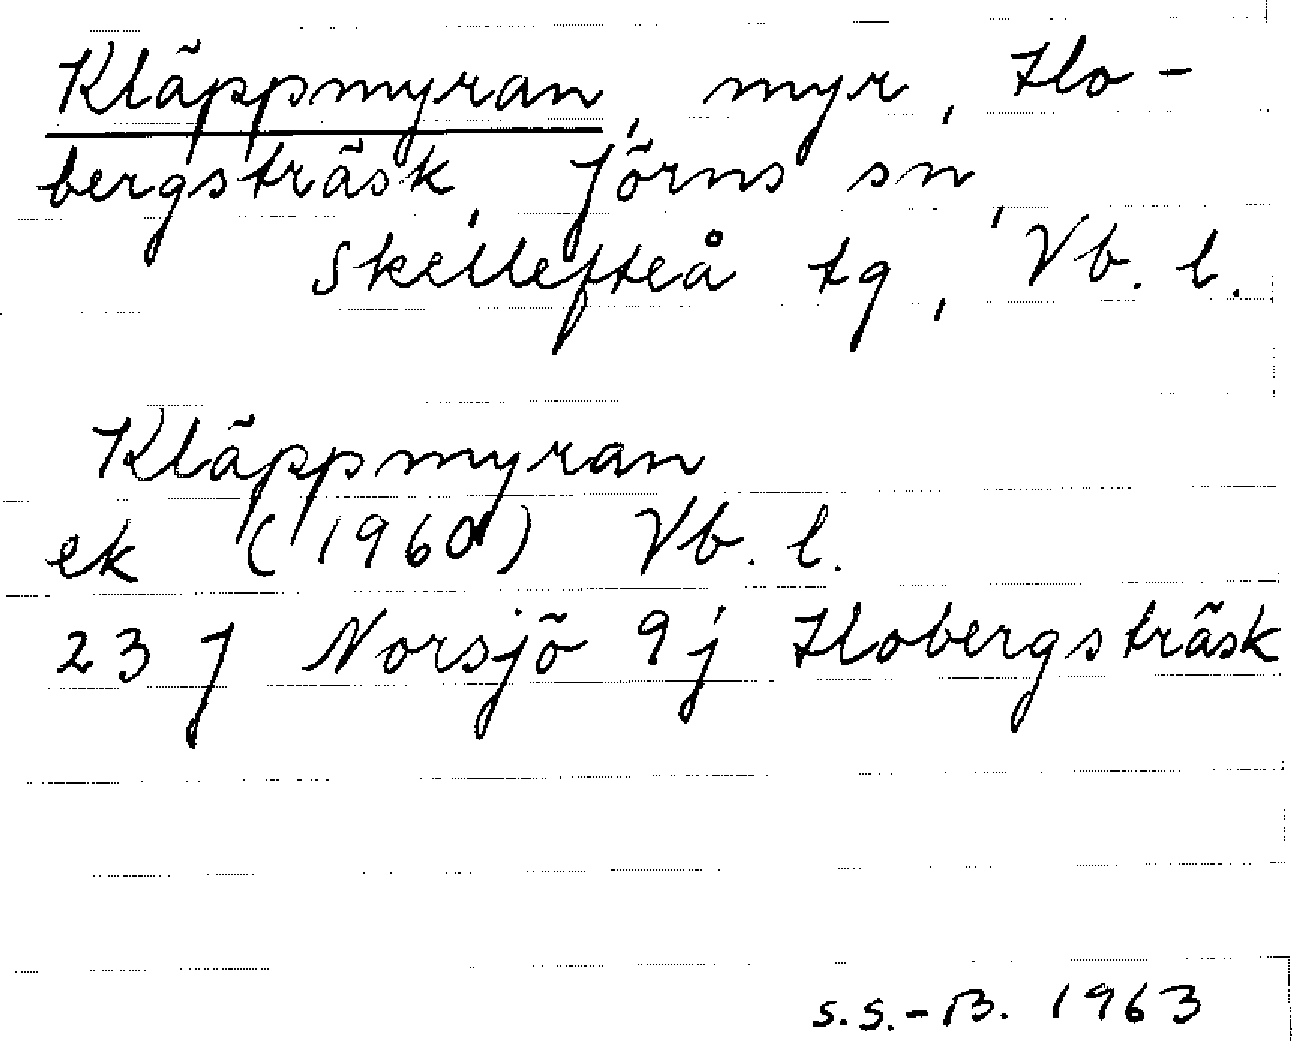 Kläppmyran, myr, Ho-
bergsträsk, Jörns sn,
Skellefteå tg, Vb. l.
Kläppmyran
ek (1960) Vb. l.
23 J Norsjö 9j Hobergsträsk
S.S.-B. 1963